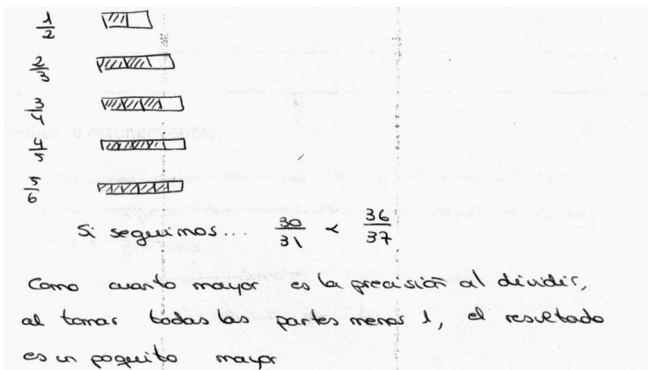 1/2
2/3
3/4
4/5
5/6
Si seguimos... 30/31 < 36/37
Como cuanto mayor es la precisión al dividir,
al tomar todas las partes menos 1, el resultado
es un poquito mayor